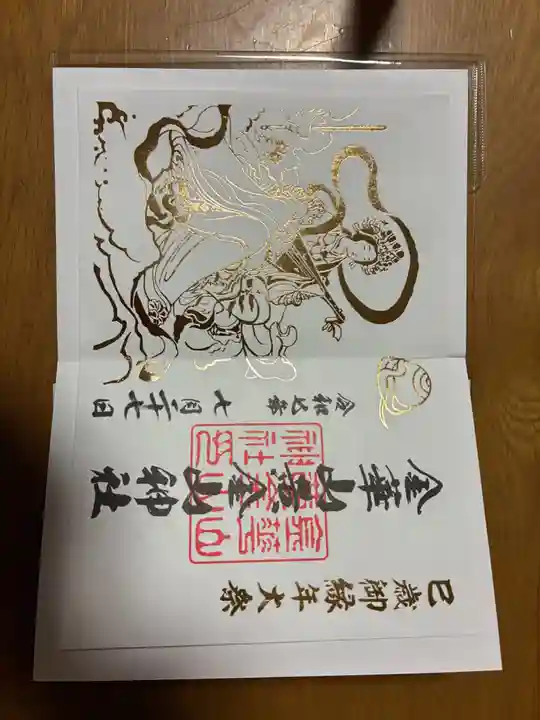 巳歳御縁年大祭
金華山黄金山神社
金華山
黄金山
神社印
令和七年 七月二十七日